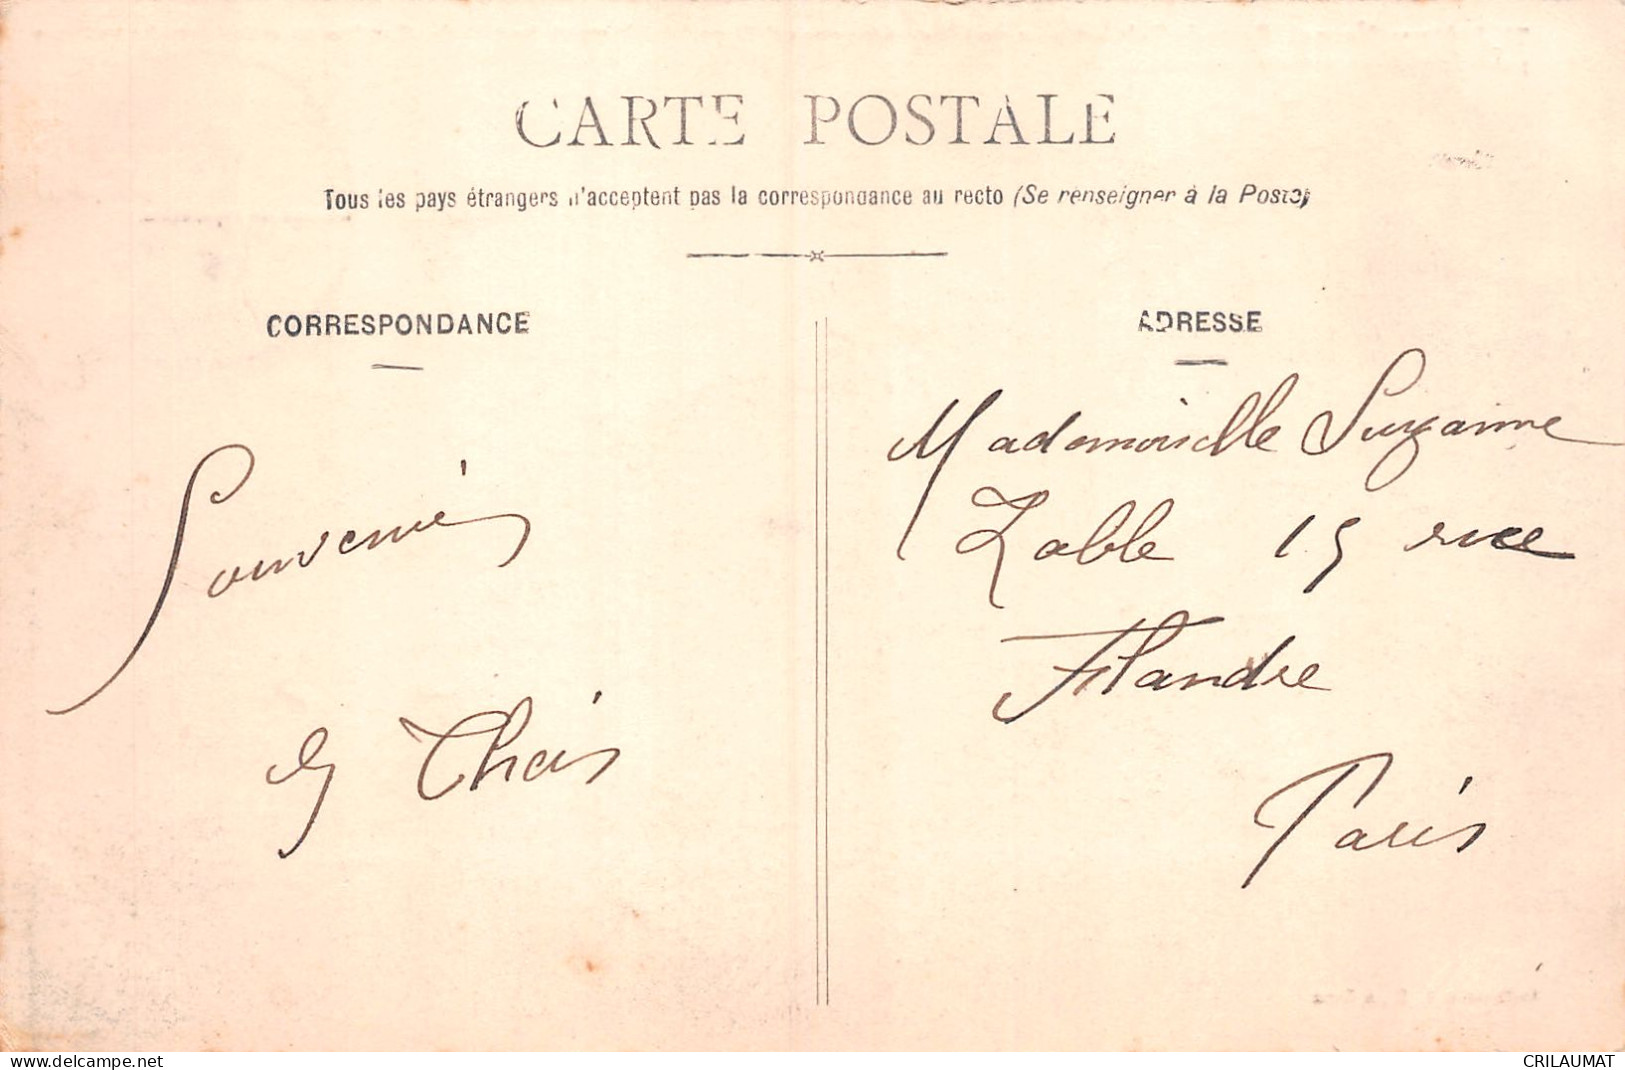 CARTE POSTALE
Tous les pays étrangers n'acceptent pas la correspondance au recto (Se renseigner à la Poste)
CORRESPONDANCE
Souvenir
Chais
ADRESSE
Mademoiselle Suzanne
Lable 15 rue
Flandre
Paris
www.delcampe.net
CRILAUMAT